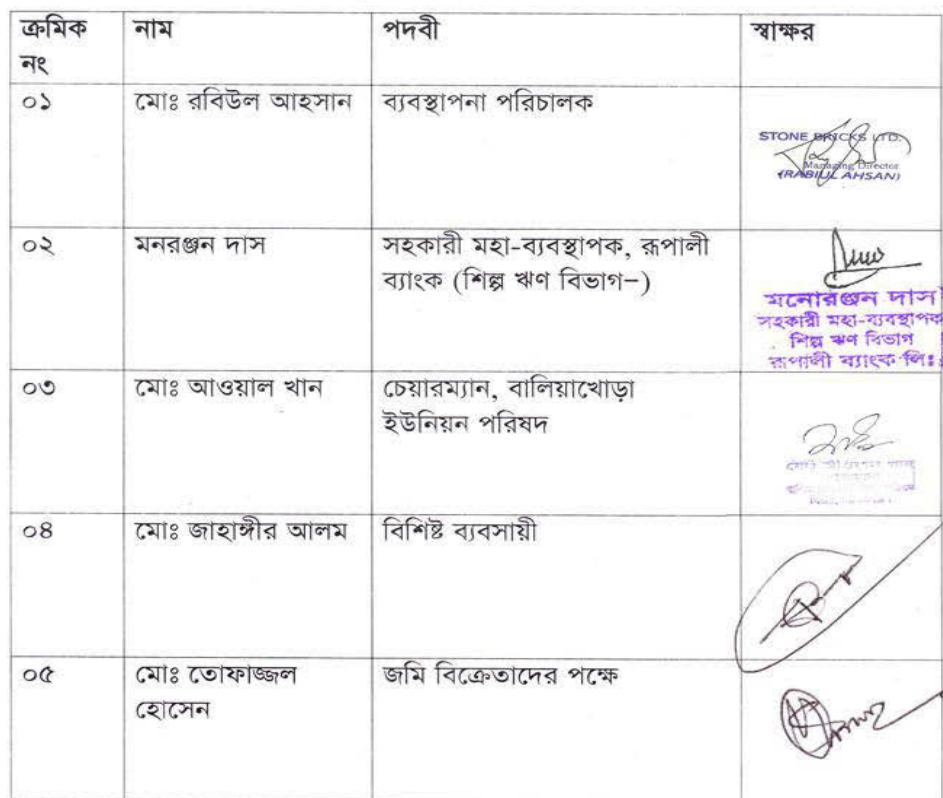 ক্রমিক নাম পদবী স্বাক্ষর
নং
০১ মোঃ রবিউল আহসান ব্যবস্থাপনা পরিচালক
STONE BRICKS LTD.
Managing Director
(RABIUL AHSAN)
০২ মনরঞ্জন দাস সহকারী মহা-ব্যবস্থাপক, রূপালী
ব্যাংক (শিল্প ঋণ বিভাগ–)
মনোরঞ্জন দাস
সহকারী মহা-ব্যবস্থাপক
শিল্প ঋণ বিভাগ
রূপালী ব্যাংক লিঃ
০৩ মোঃ আওয়াল খান চেয়ারম্যান, বালিয়াখোড়া
ইউনিয়ন পরিষদ
০৪ মোঃ জাহাঙ্গীর আলম বিশিষ্ট ব্যবসায়ী
০৫ মোঃ তোফাজ্জল জমি বিক্রেতাদের পক্ষে
হোসেন